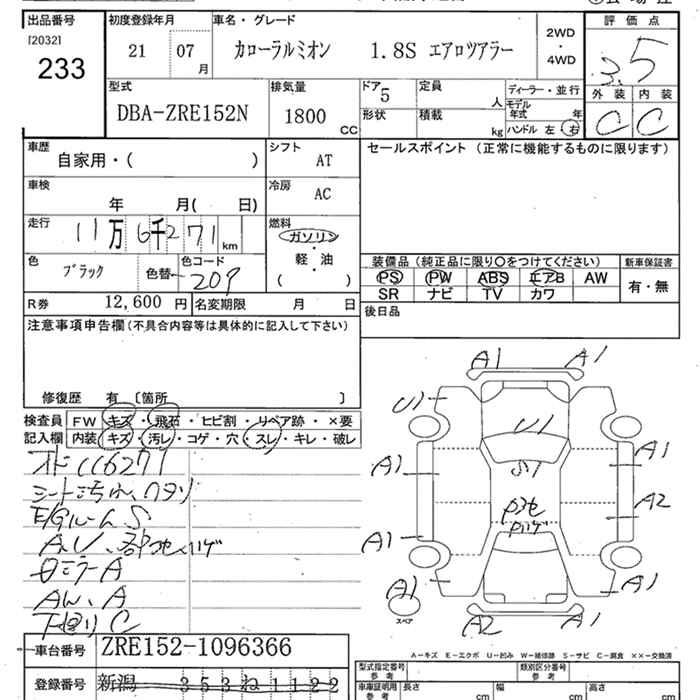 出品番号 初度登録年月 車名・グレード 評価点
[2032] 233
21 07 月 カローラルミオン 1.8S エアロツアラー 2WD ・ 4WD 3.5
型式 排気量 ドア 定員 ディーラー・並行 外装 内装
DBA-ZRE152N 1800 cc 5 人 モデル年式 年 C C
形状 積載 kg ハンドル 左 右
車歴 シフト セールスポイント (正常に機能するものに限ります)
自家用・( ) AT
車検 冷房
年 月( 日) AC
走行 燃料
11万6千271 km ガソリン
軽・油
( )
色 色コード 装備品 (純正品に限り〇をつけてください) 新車保証書
ブラック 色替 209 PS PW ABS エアB AW 有・無
R券 12,600 円 名変期限 月 日 SR ナビ TV カワ
注意事項申告欄 (不具合内容等は具体的に記入して下さい) 後日品
修復歴 有 〔箇所 〕
検査員 FW キズ・飛石・ヒビ割・リペア跡・×要
記入欄 内装 キズ・汚レ・コゲ・穴・スレ・キレ・破レ
オド116271
シート汚れ、ワタリ
E/GルームS
A.U、部セハゲ
ミラーA
AW、A
下廻りC
A1 A1
U1
U1
A1 S1 A1
A2
A1
ハゲ
A1 A1
スペア
A2 A1
A-キズ E-エクボ U-凹み W-補修跡 S-サビ C-腐食 ××-交換済
車台番号 ZRE152-1096366
型式指定番号 参考 類別区分番号 参考
登録番号 新潟 353ね1122
車庫証明用 参考 長さ cm 幅 cm 高さ cm